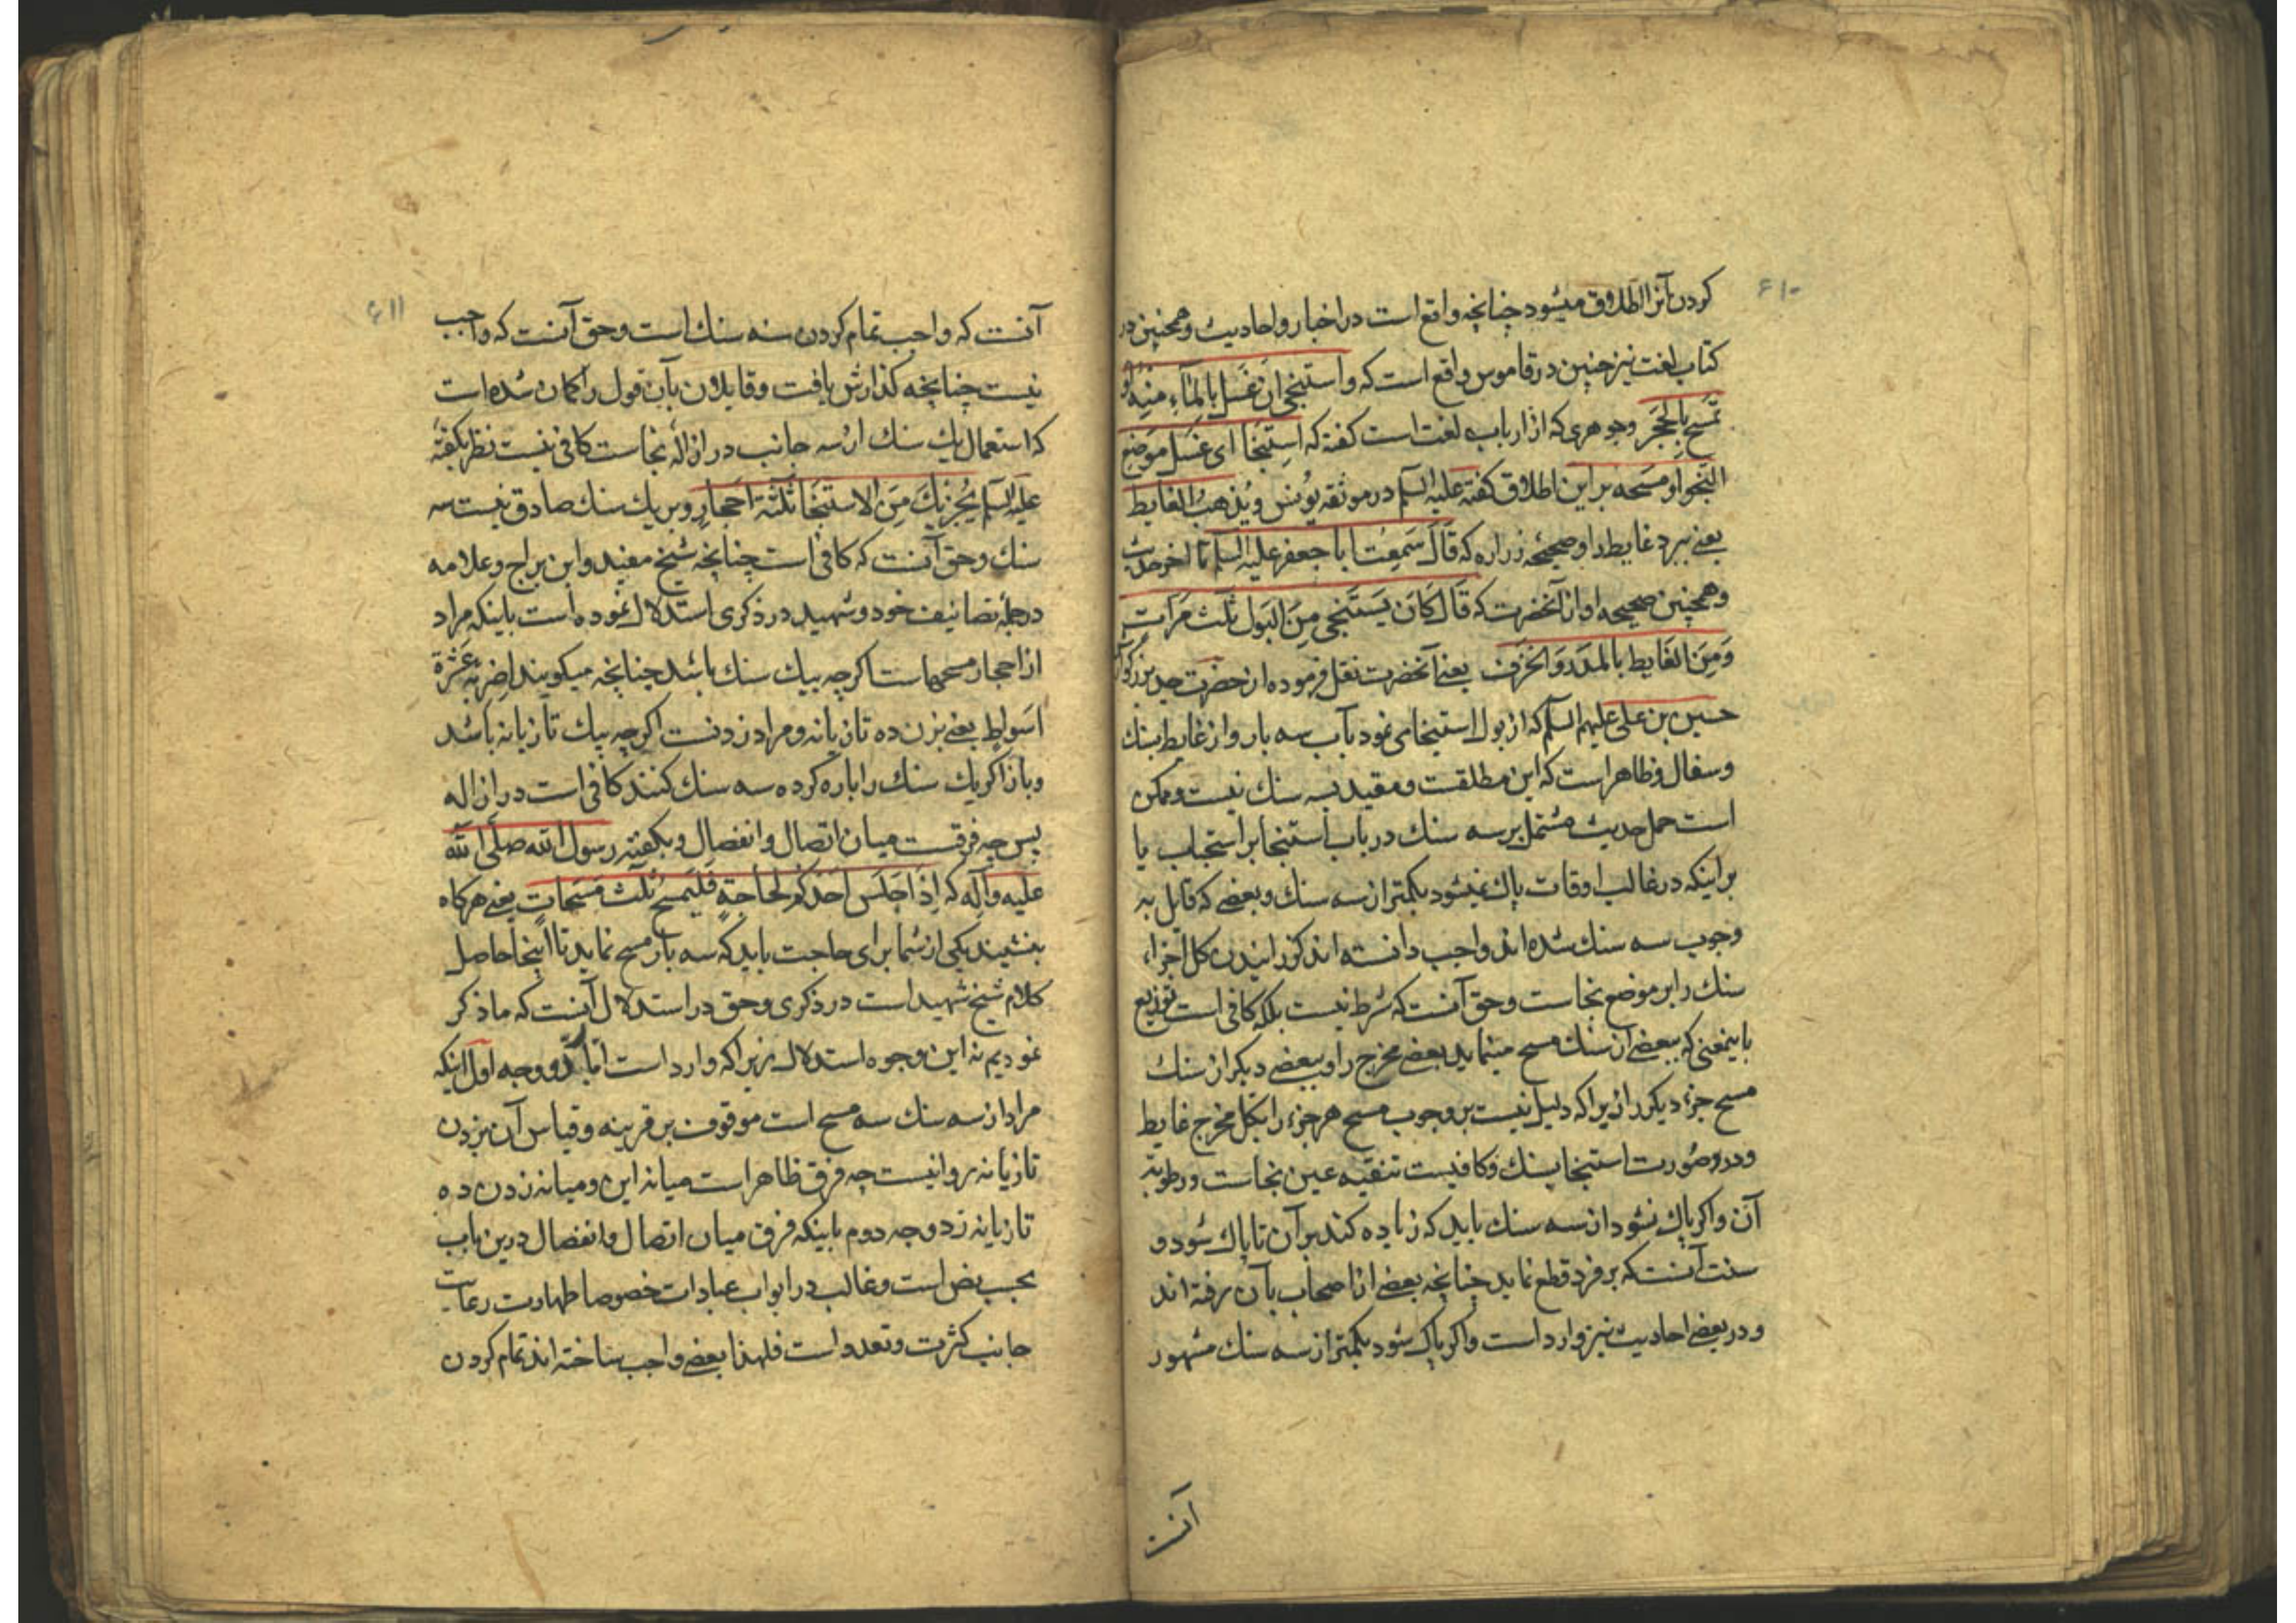 ۶۱۰
کردن آنرا اطلاق میشود چنانچه واقع است در اخبار و احادیث و همچنین در
کتاب لغت نیز چنین در قاموس واقع است که واستنجی ان غسل بالمآء منه و
تمسح بالحجر وجوهری که از ارباب لغت است کفته که استنجا ای غسل موضع
النجو او مسحه بر این اطلاق کفته علیه السلم در موثقه یونس ویذهب الغایط
یعنی ببرد غایط را و صحیحه زراره که قال سمعت ابا جعفر علیه السلم تا اخر حدیث
وهمچنین صحیحه او از آنحضرت که قال کان یستنجی من البول ثلث مرات
ومن الغایط بالمدر والخزف یعنی آنحضرت نقل فرموده از حضرت جد بزرکوار
حسین بن علی علیهم السلم که از بول استنجا می نمود بآب سه بار واز غایط بسنك
وسفال وظاهر است که این مطلقست ومقید بسه سنك نیست وممکن
است حمل حدیث مشتمل بر سه سنك در باب استنجا بر استحباب یا
بر اینکه در غالب اوقات پاك نمیشود بکمتر از سه سنك وبعضی که قایل به
وجوب سه سنك شده اند واجب دانسته اند کذرانیدن کل اجزاء
سنك را بر موضع نجاست وحق آنست که شرط نیست بلکه کافی است توزیع
باینمعنی که ببعضی از سنك مسح مینماید بعضی مخرج را وببعضی دیکر از سنك
مسح جزء دیکر را زیرا که دلیل نیست بر وجوب مسح هر جزء را بکل مخرج غایط
ودر صورت استنجا بسنك وکافیست تنقیه عین نجاست ورطوبة
آن واکر پاك نشود از سه سنك باید که زیاده کند بر آن تا پاك شود و
سنت آنست که بر فرد قطع نماید چنانچه بعضی از اصحاب بآن رفته اند
ودر بعضی احادیث نیز وارد است واکر پاك شود بکمتر از سه سنك مشهور
آنست
۶۱۱
آنست که واجب تمام کردن سه سنك است وحق آنست که واجب
نیست چنانچه کذارش یافت وقایلان بآن قول را کمان شده است
که استعمال یك سنك از سه جانب در ازاله نجاست کافی نیست نظر بکفتهٔ
علیه السلم یجزیك من الاستنجا ثلثة احجار وبر یك سنك صادق نیست سه
سنك وحق آنست که کافی است چنانچه شیخ مفید وابن براج وعلامه
در جملهٔ تصانیف خود وشهید در ذکری استدلال نموده است باینکه مراد
از احجار مسحهاست اکر چه بیك سنك باشد چنانچه میکویند اضربه عشرة
اسواط یعنی بزن ده تازیانه ومراد زدنست اکر چه بیك تازیانه باشد
وباز اکر یك سنك را پاره کرده سه سنك کنند کافی است در ازاله
پس چه فرقست میان اتصال وانفصال وبکفتهٔ رسول الله صلی الله
علیه وآله که اذا جلس احدکم لحاجة فلیمسح ثلث مسحات یعنی هرکاه
بنشیند یکی از شما برای حاجت باید که سه بار مسح نماید تا اینجا حاصل
کلام شیخ شهید است در ذکری وحق در استدلال آنست که ما ذکر
نمودیم نه این وجوه استدلال زیرا که وارد است وجه اول اینکه
مراد از سه سنك سه مسح است موقوف بر قرینه وقیاس آن بزدن
تازیانه روا نیست چه فرق ظاهر است میانه این ومیانه زدن ده
تازیانه زد وجه دوم باینکه فرق میان اتصال وانفصال درین باب
بحسب نص است وغالب در ابواب عبادات خصوصا طهارت رعایت
جانب کثرت وتعدد است فلهذا بعضی واجب ساخته اند تمام کردن